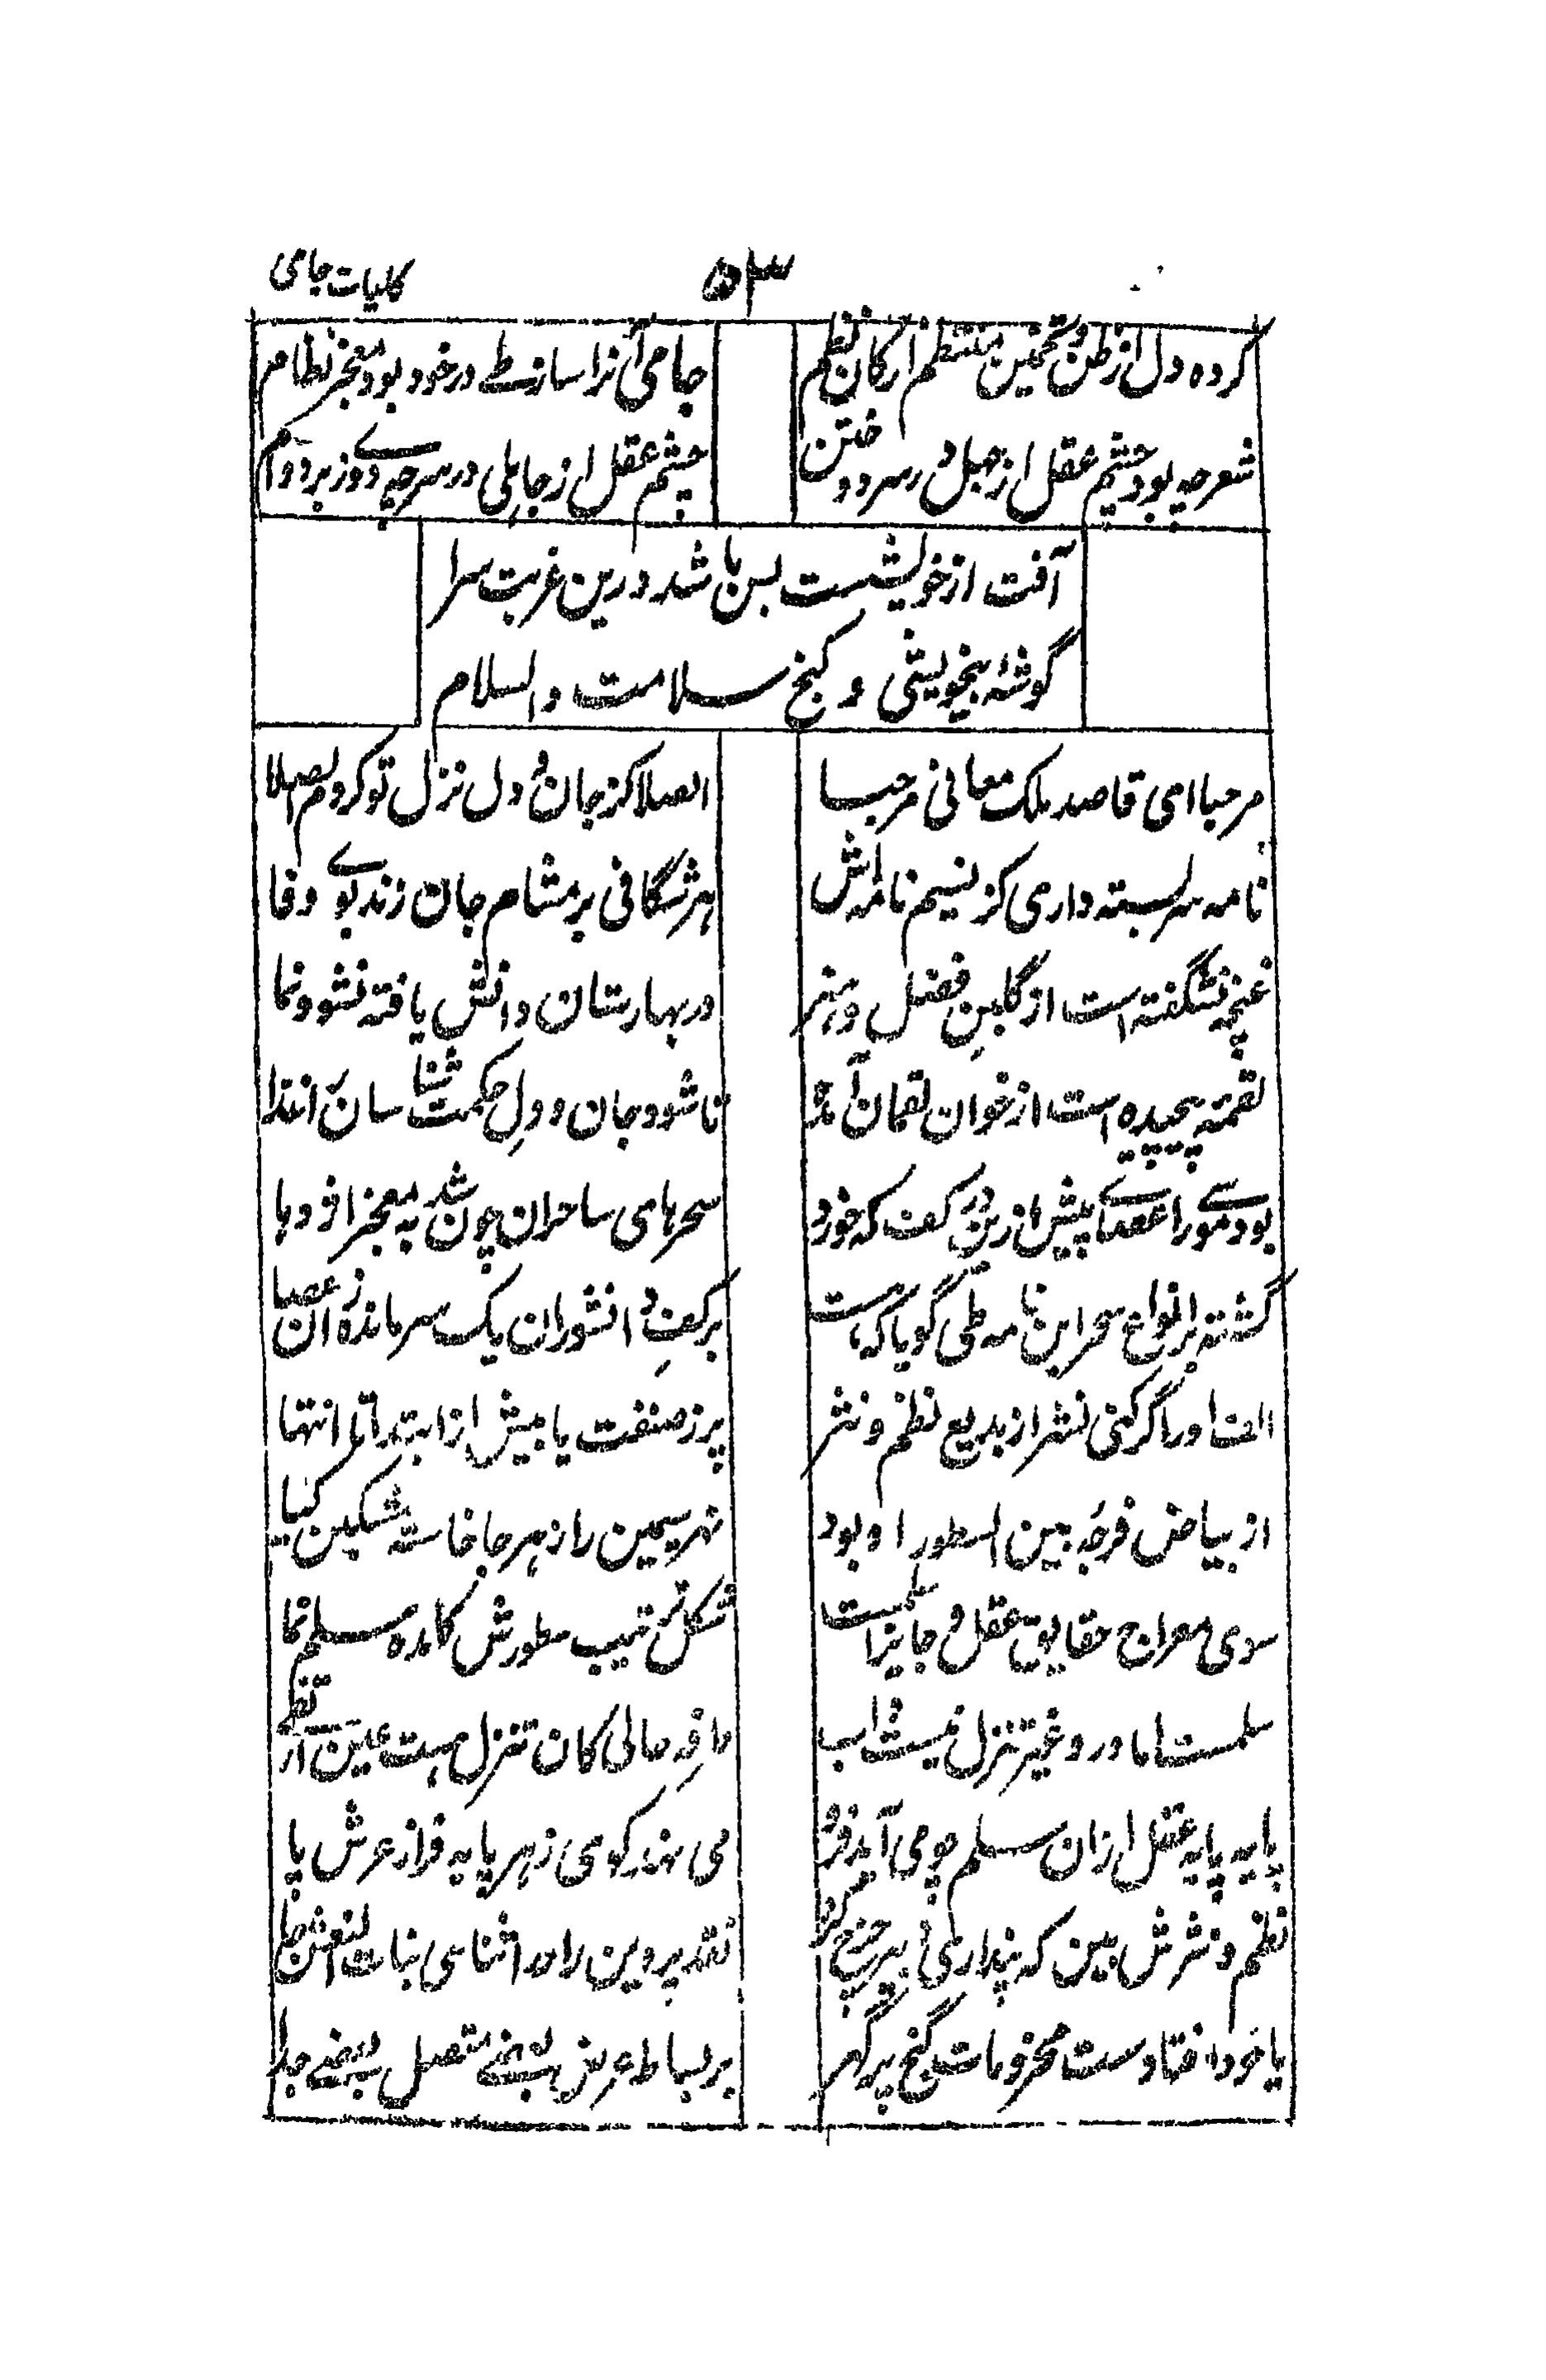 کلیات جامی
۵۱۳
کرده دل از ظن و تخمین منتظم ارکان نظم
جامی آنرا ساز طے در خود بود معجز نظام
شعر چه بود چشم عقل از جهل در سر دوختن
چشم عقل از جاہلی در سر چه دوزے بر دوام
آفت از خویشست بس باشد درین غربت سرا
گوشهٔ بیخویشی و کنج سلامت والسلام
مرحبا ای قاصد ملک معانی مرحبا
الصلا کز جان و دل نزل تو کردم الصلا
نامه سر بسته داری کز نسیم نامه اش
هر شگافی بر مشام جان زند بوے وفا
غنچه نشگفته است از گلبنِ فضل و هنر
در بهارستان دانش یافته نشو و نما
لقمهٔ پیچیده است از خوان لقمان آمده
تا شود جان و دلِ حکمت شناسان را غذا
بود موسے را عصائے پیش ازین در کف که خورد
سحرهای ساحران چون شد به معجز اژدها
گشته بر انواع سحر این نامه طی گویا که هست
بر کفِ دانشوران یک سر مانده زان عصا
الف او را گر کنی نشر از بدیع نظم و نثر
پر ز صنعت یابیش از ابتدا تا انتها
از بیاض فرجهٔ بین السطور او بود
نهر سیمین را ز هر جا خاسته مشکین گیا
سوی معراج حقایق عقل و جانرا سلمست
شکل ترتیب سطورش کامده سلم نما
سلمست اما درو غیر تنزل نیست
حالی کان تنزل هست عین ارتقا
پایه پایه عقل ازان سلم چو می آید فرو
می نهد کوسی ز هر پایه فراز عرش پا
نظم و نثرش بین که پنداری دبیر چرخ کرد
نقد پروین را در اثنای بنات النعش جا
یا خود افتادست مخزومات گنج پر گهر
بر بساط عرض بعضے متصل بعضے جدا